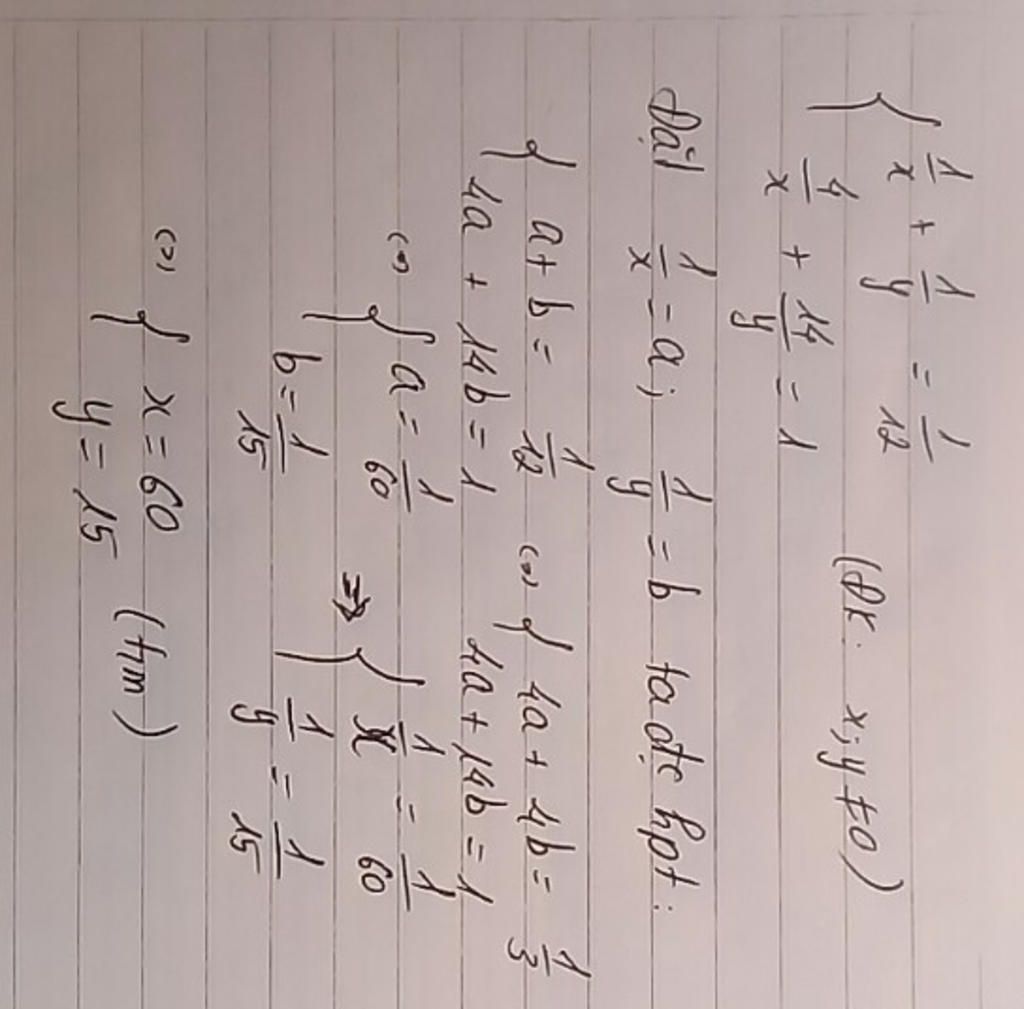 { 1/x + 1/y = 1/12
{ 4/x + 14/y = 1 (Đk: x; y ≠ 0)
Đặt 1/x = a; 1/y = b ta đc hpt:
{ a + b = 1/12 (=) { 4a + 4b = 1/3
{ 4a + 14b = 1 { 4a + 14b = 1
(=) { a = 1/60 => { 1/x = 1/60
{ b = 1/15 { 1/y = 1/15
(=) { x = 60
{ y = 15 (tm)